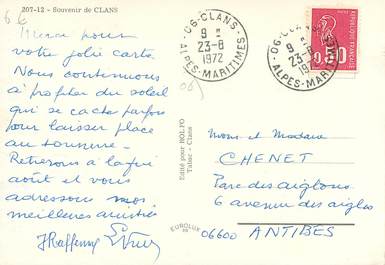 207-12 - Souvenir de CLANS
Merci pour
votre jolie carte
Nous continuons
à profiter du soleil
qui se cache parfois
pour laisser place
au tonnerre -
Rentrerons à la fin
août et vous
adressons nos
meilleures amitiés
06-CLANS
9 H
23-8
1972
ALPES-MARITIMES
06-CLANS
9 H
23-8
ALPES-MARIT
0,50
Edité pour HOLPO
Tabac - Clans
EUROLUX
Monsieur et Madame
CHENET
Parc des aiglons
6 avenue des aigles
06600 ANTIBES